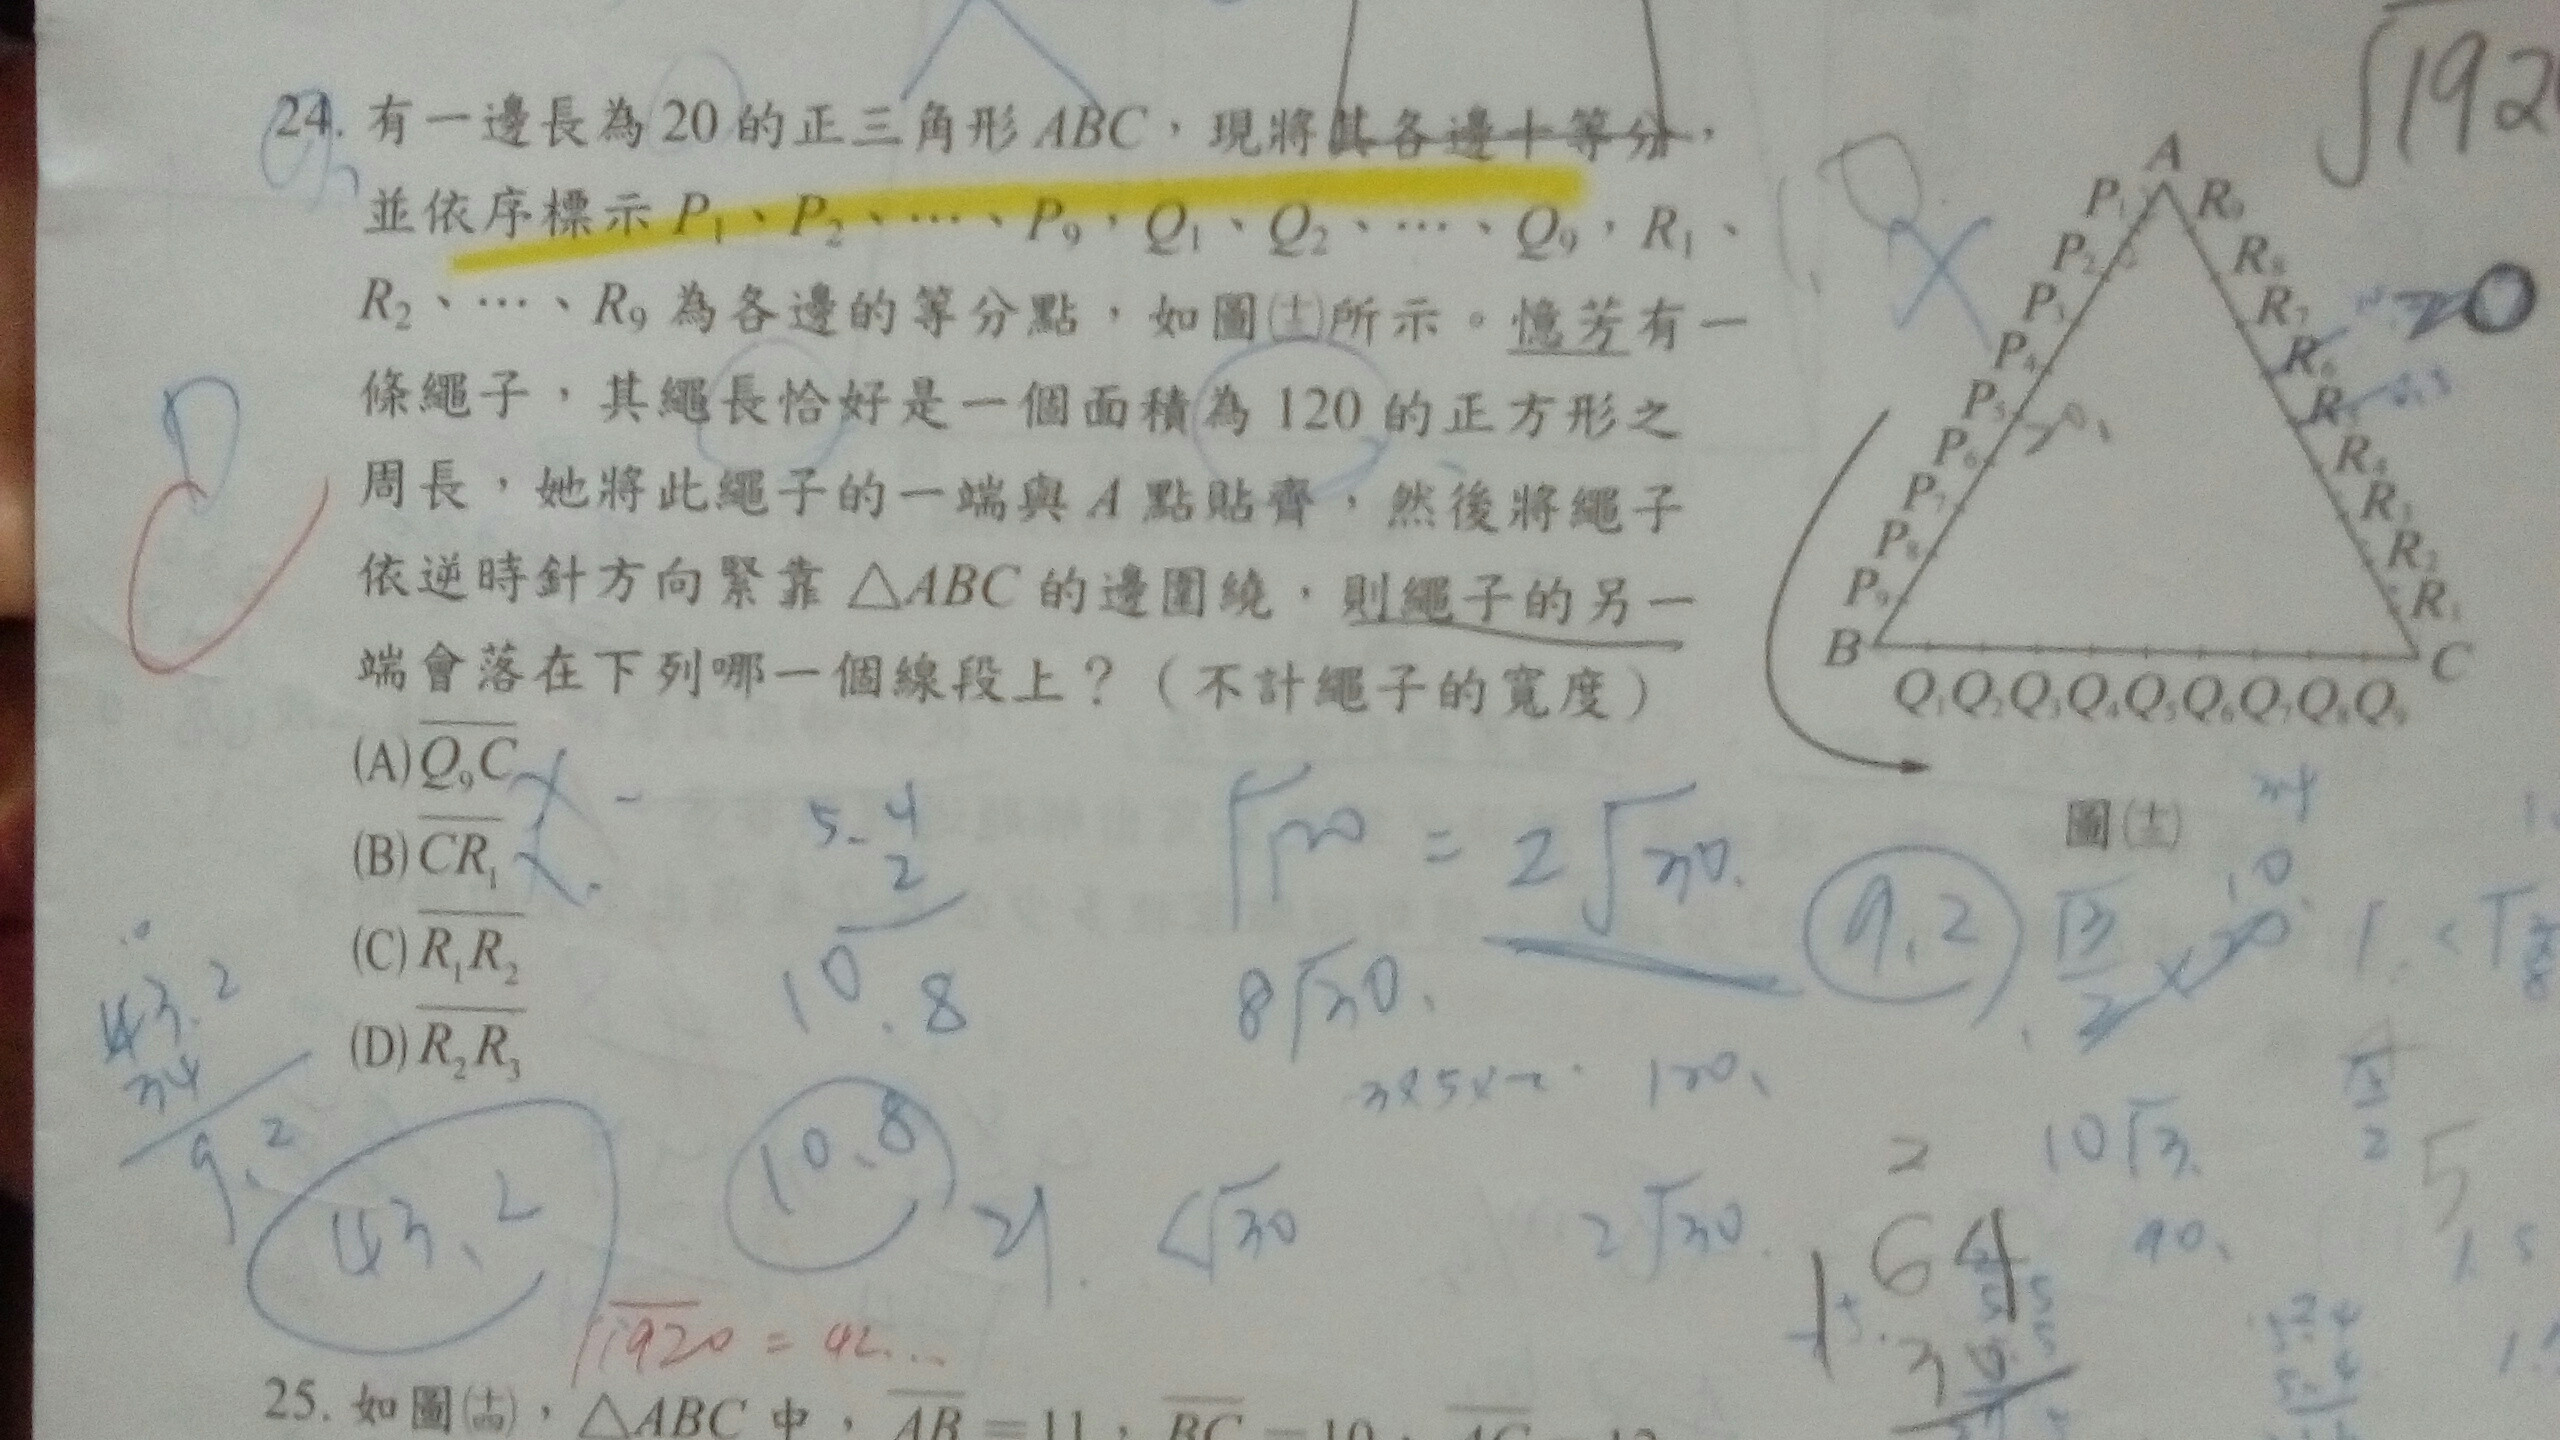 24. 有一邊長為 20 的正三角形 ABC，現將其各邊十等分，
並依序標示 P₁、P₂、…、P₉，Q₁、Q₂、…、Q₉，R₁、
R₂、…、R₉ 為各邊的等分點，如圖(十三)所示。憶芳有一
條繩子，其繩長恰好是一個面積為 120 的正方形之
周長，她將此繩子的一端與 A 點貼齊，然後將繩子
依逆時針方向緊靠 △ABC 的邊圍繞，則繩子的另一
端會落在下列哪一個線段上？（不計繩子的寬度）
(A) Q₉C
(B) CR₁
(C) R₁R₂
(D) R₂R₃
A
P₁ R₉
P₂ R₈
P₃ R₇
P₄ R₆
P₅ R₅
P₆ R₄
P₇ R₃
P₈ R₂
P₉ R₁
B C
Q₁ Q₂ Q₃ Q₄ Q₅ Q₆ Q₇ Q₈ Q₉
圖(十三)
√192
20
5.4
2
10.8
= 2√30.
9.2
8√30.
43.2
34
9.2
120.
10√3.
43.2
10.8
21.
√30
2√30.
2
64
90.
5
√1920 = 42...
25. 如圖(十四)，△ABC 中，AB = 11，BC = 10，AC